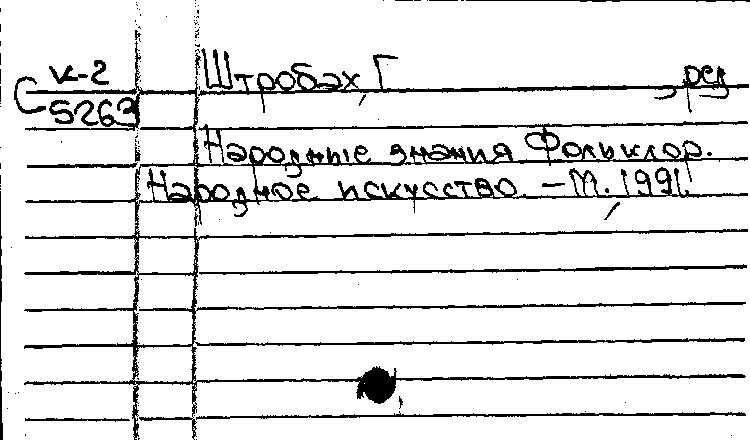 К-2
С-5263
Штробах, Г , ред
Народные знания Фольклор.
Народное искусство. - М., 1991.